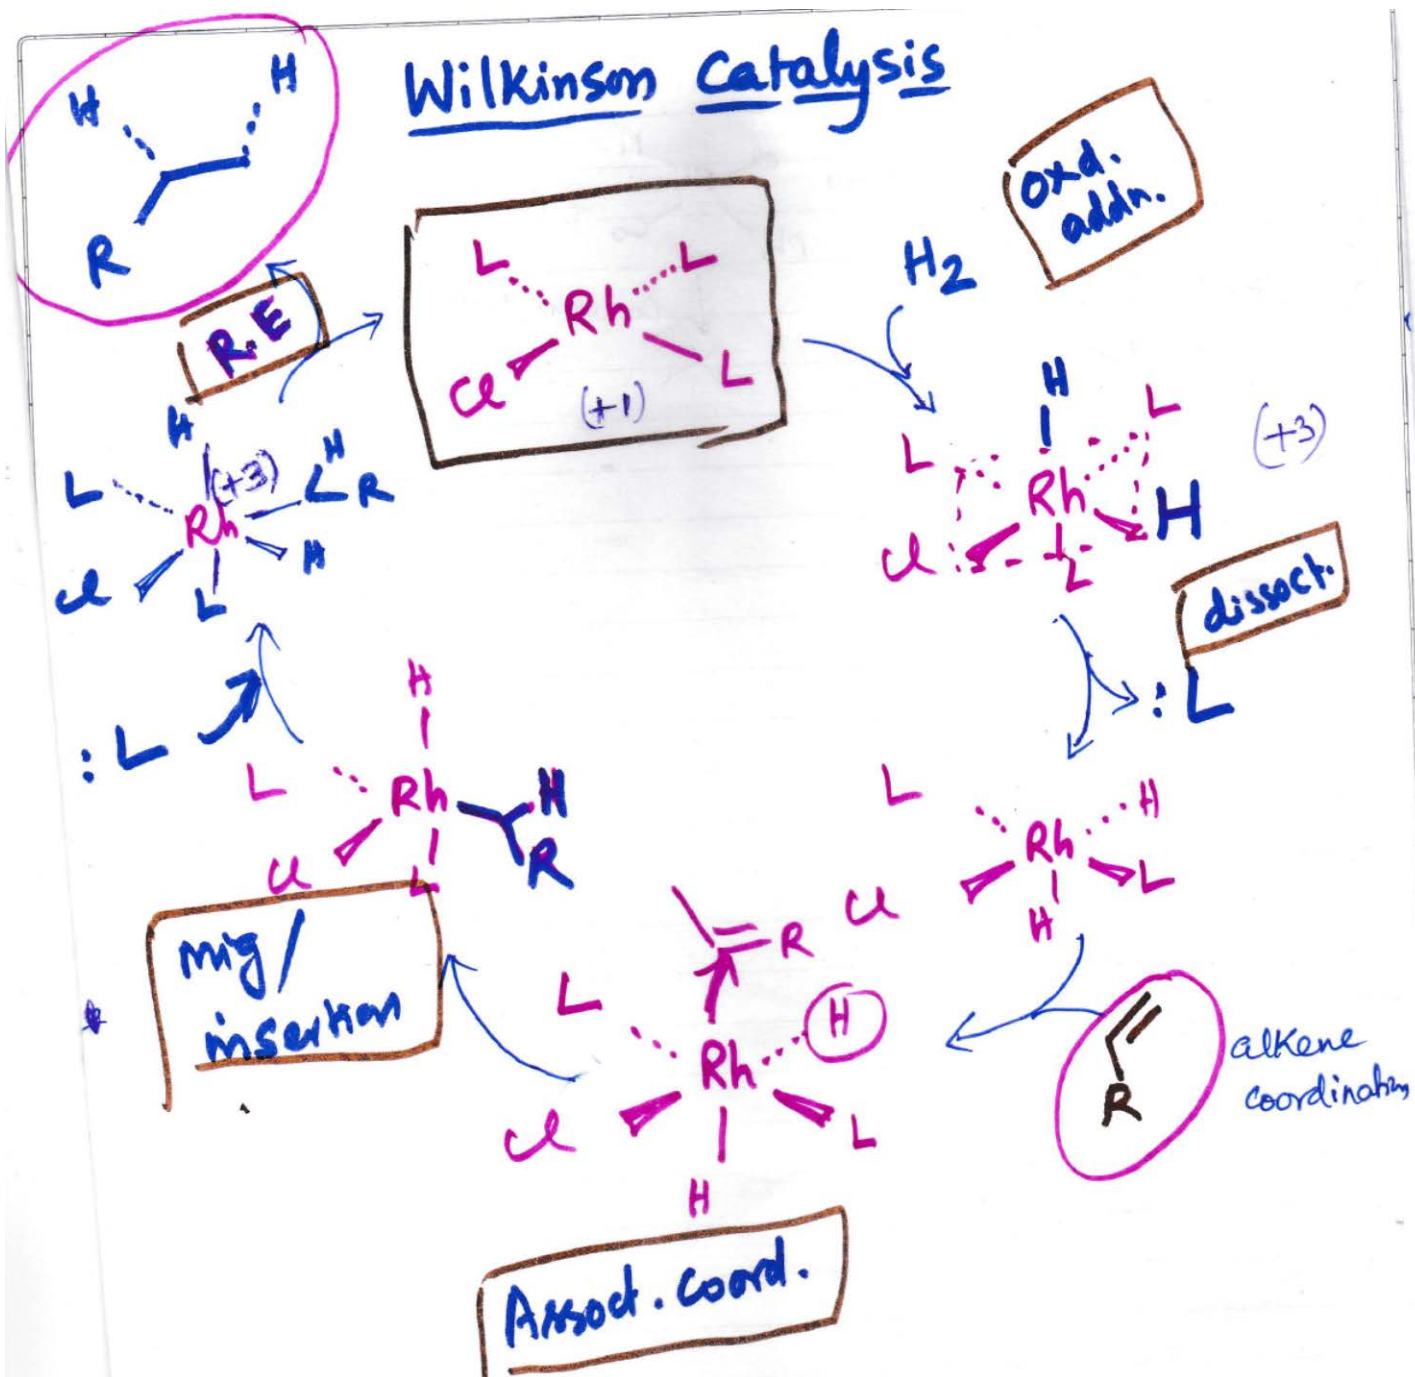 Wilkinson Catalysis
H
H
R
R.E
L
L
Rh
Cl
L
(+1)
H2
oxd.
addn.
H
L
L
Rh
H
Cl
L
(+3)
dissoct.
:L
L
H
Rh
Cl
L
H
alkene
coordination
R
R
L
H
Rh
Cl
L
H
Assoct. Coord.
mig/
insertion
H
L
Rh
H
R
Cl
L
:L
H
(+3)
H
L
R
Rh
H
Cl
L